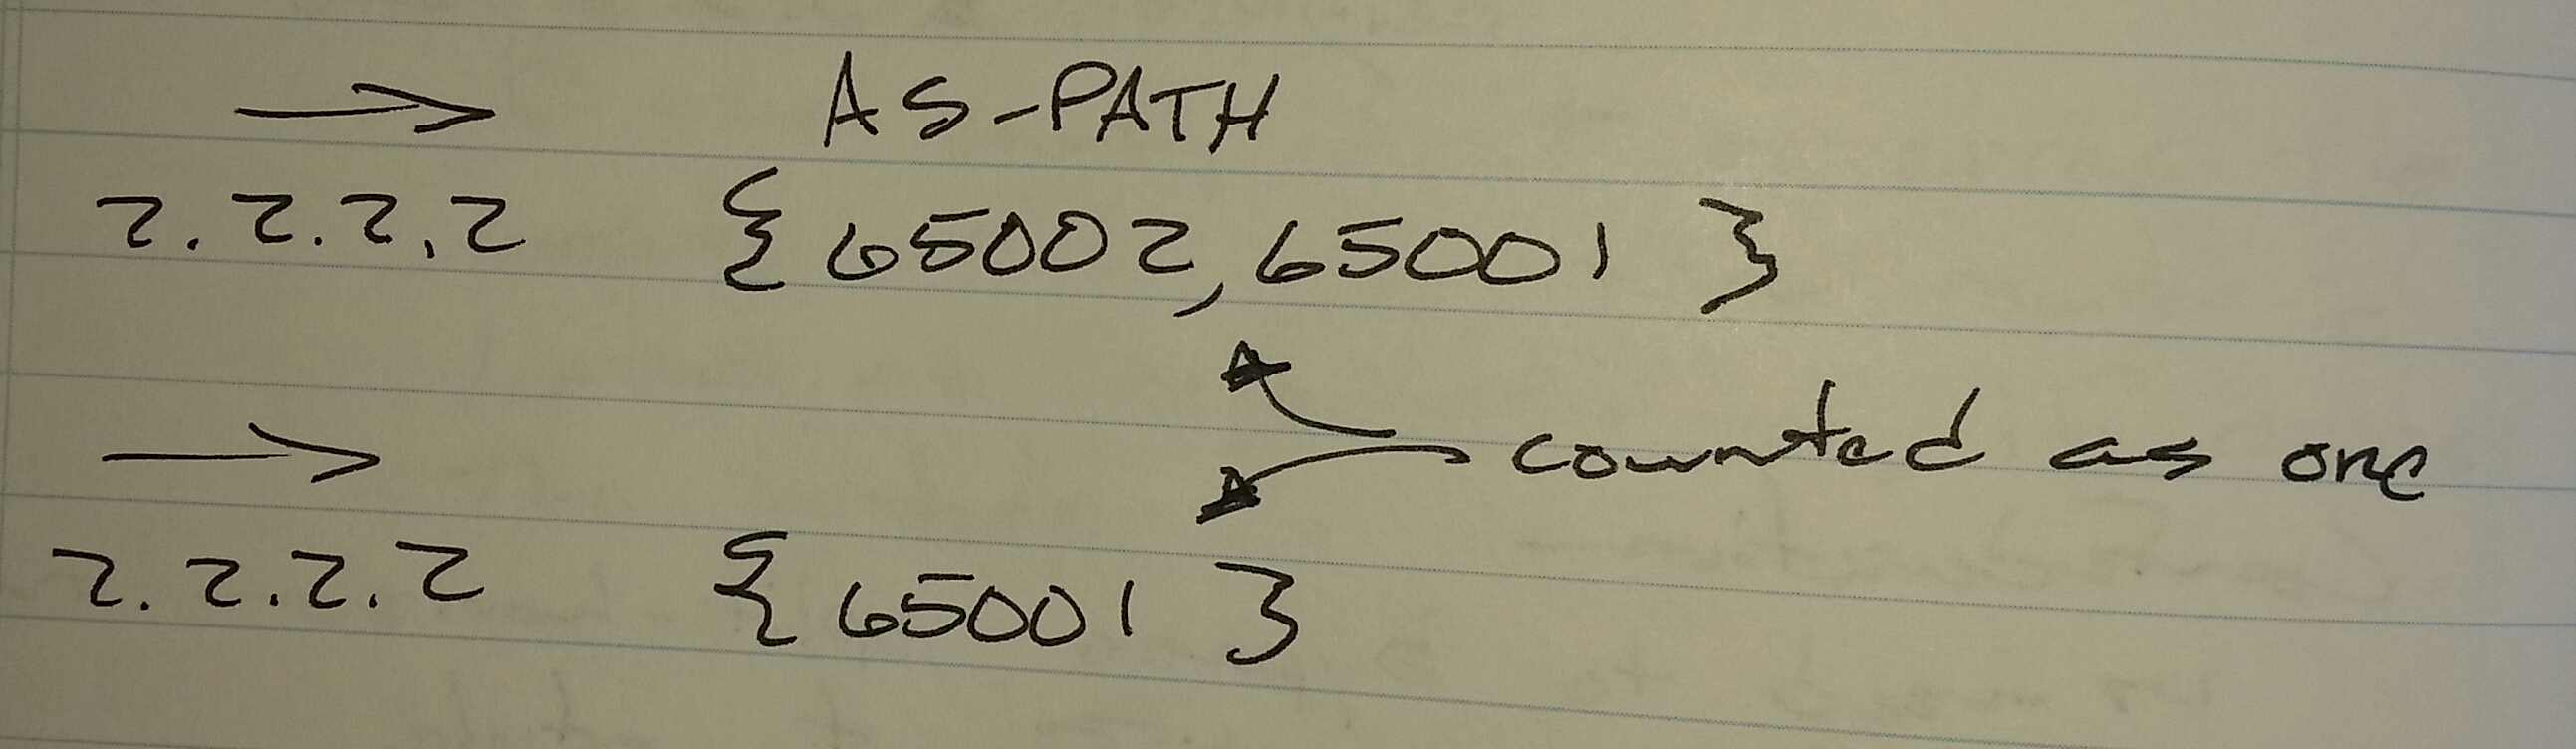 → AS-PATH
2.2.2.2 {65002,65001}
→ counted as one
2.2.2.2 {65001}